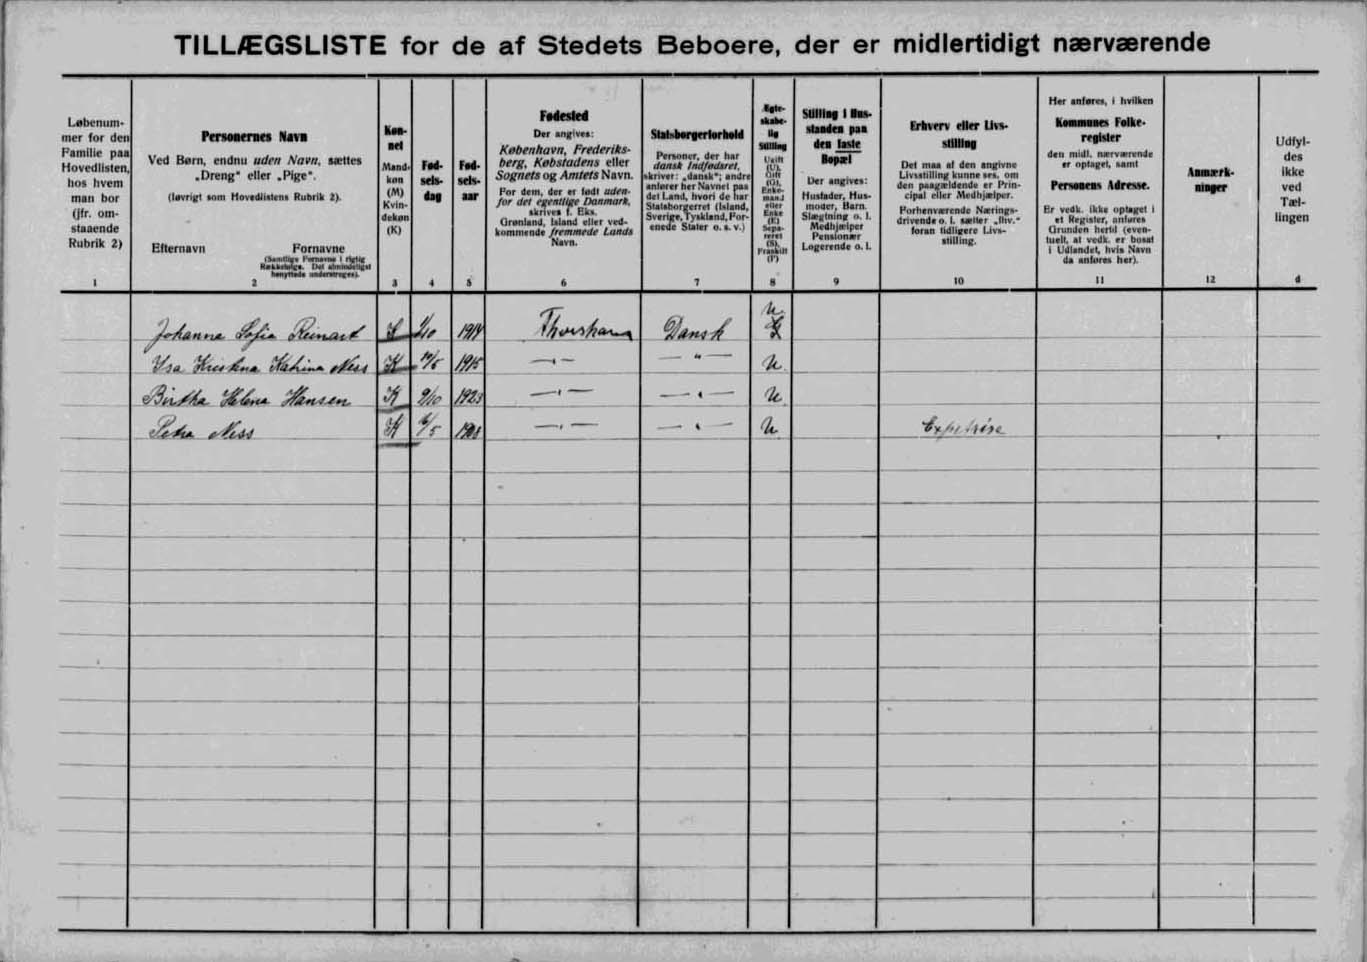 TILLÆGSLISTE for de af Stedets Beboere, der er midlertidigt nærværende
Løbenum-
mer for den
Familie paa
Hovedlisten,
hos hvem
man bor
(jfr. om-
staaende
Rubrik 2)
1
Personernes Navn
Ved Børn, endnu uden Navn, sættes
„Dreng" eller „Pige".
(Iøvrigt som Hovedlistens Rubrik 2).
Efternavn Fornavne
(Samtlige Fornavne i rigtig
Rækkefølge. Det almindeligst
benyttede understreges).
2
Køn-
net
Mand-
køn
(M)
Kvin-
dekøn
(K)
3
Fød-
sels-
dag
4
Fød-
sels-
aar
5
Fødested
Der angives:
København, Frederiks-
berg, Købstadens eller
Sognets og Amtets Navn.
For dem, der er født uden-
for det egentlige Danmark,
skrives f. Eks.
Grønland, Island eller ved-
kommende fremmede Lands
Navn.
6
Statsborgerforhold
Personer, der har
dansk Indfødsret,
skriver: „dansk"; andre
anfører her Navnet paa
det Land, hvori de har
Statsborgerret (Island,
Sverige, Tyskland, For-
enede Stater o. s. v.)
7
Ægte-
skabe-
lig
Stilling
Ugift
(U),
Gift
(G),
Enke-
mand
eller
Enke
(E)
Sepa-
reret
(S),
Fraskilt
(F)
8
Stilling i Hus-
standen paa
den faste
Bopæl
Der angives:
Husfader, Hus-
moder, Barn,
Slægtning o. l.
Medhjælper
Pensionær
Logerende o. l.
9
Erhverv eller Livs-
stilling
Det maa af den angivne
Livsstilling kunne ses, om
den paagældende er Prin-
cipal eller Medhjælper.
Forhenværende Nærings-
drivende o. l. sætter „fhv."
foran tidligere Livs-
stilling.
10
Her anføres, i hvilken
Kommunes Folke-
register
den midl. nærværende
er optaget, samt
Personens Adresse.
Er vedk. ikke optaget i
et Register, anføres
Grunden hertil (even-
tuelt, at vedk. er bosat
i Udlandet, hvis Navn
da anføres her).
11
Anmærk-
ninger
12
Udfyl-
des
ikke
ved
Tæl-
lingen
d
U
Johanna Sofia Reinart K /10 1914 Thorshavn Dansk
Isa Kristina Katrina Ness K /5 1915 —"— —"— U
Birtha Helena Hansen K 9/10 1923 —"— —"— U
Petra Ness K /5 —"— —"— U